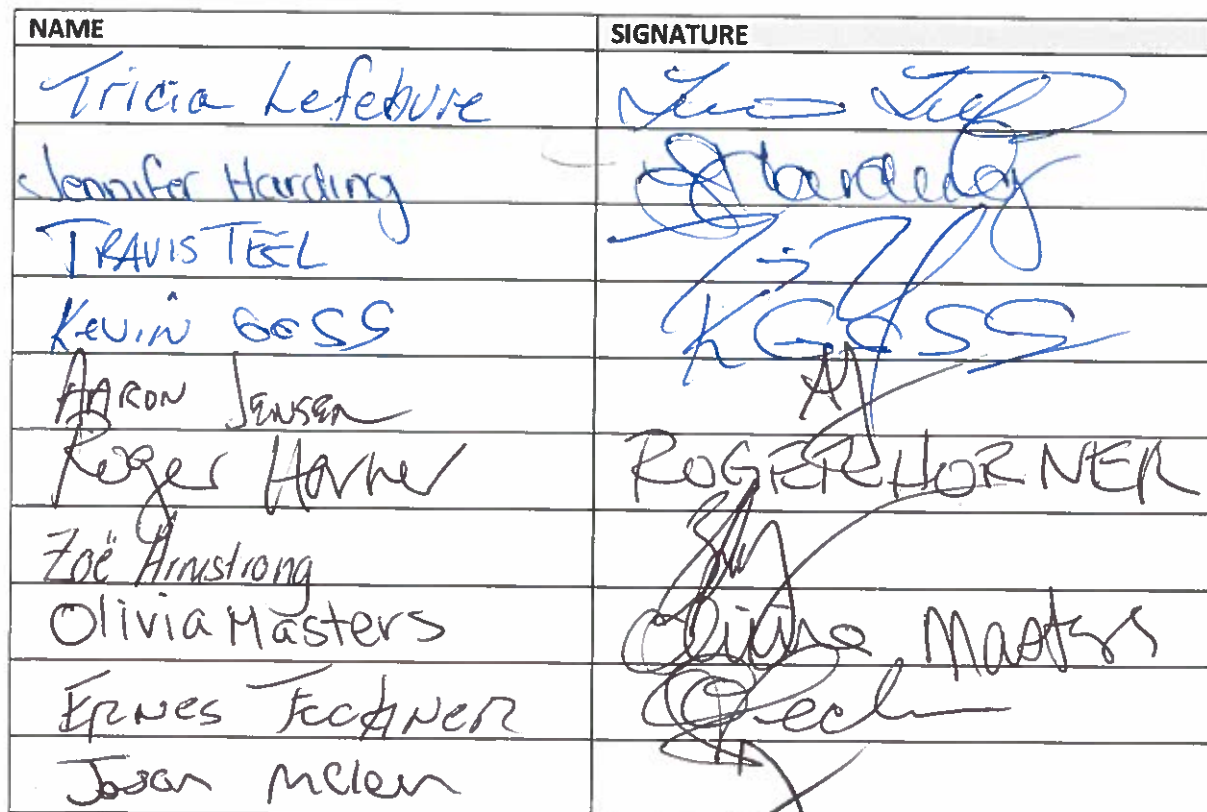 NAME SIGNATURE
Tricia Lefebvre
Jennifer Harding JHarding
TRAVIS TEEL
KEVIN GOSS KGOSS
AARON JENSEN AJ
Roger Horner ROGER HORNER
Zoë Armstrong
Olivia Masters Olivia Masters
ERNES FECHNER